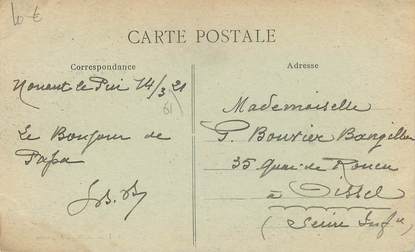 10 €
CARTE POSTALE
Correspondance
Adresse
Nonant le Pin 14/3 21
61
Le Bonjour de
Papa
Mademoiselle
P. Bouvier Bangillon
35 Quai de Rouen
à Oissel
(Seine Infre